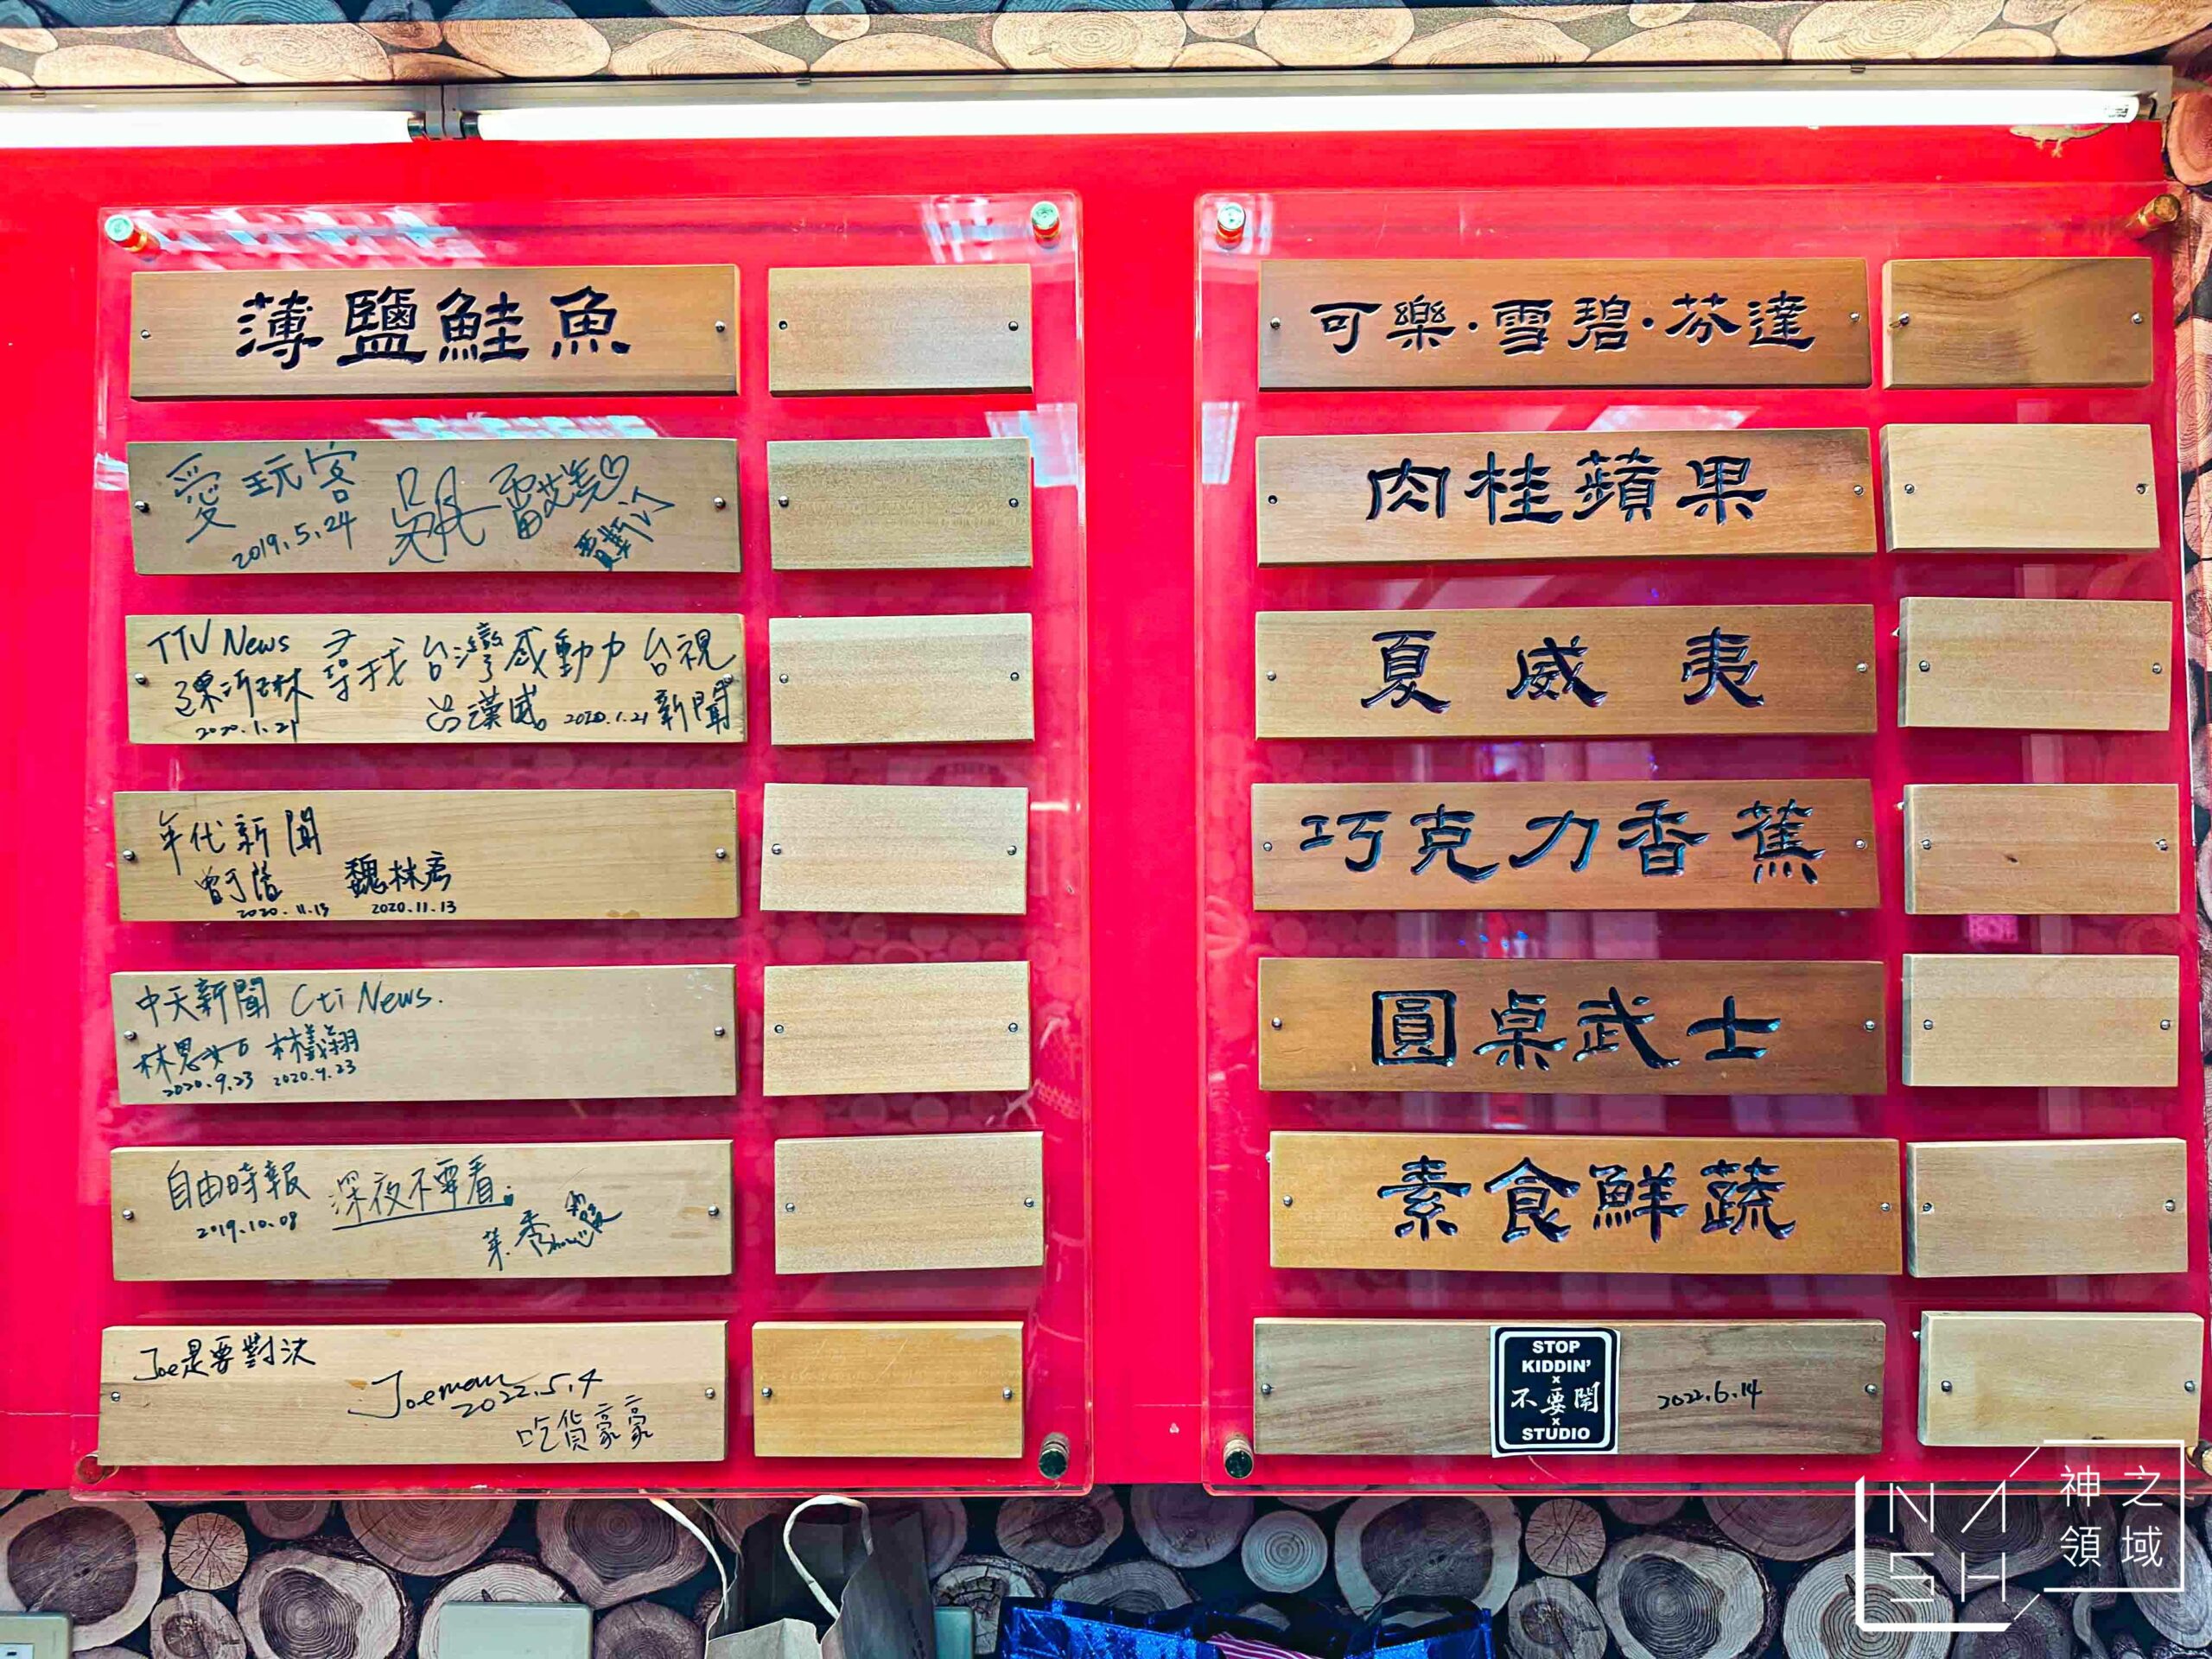 薄鹽鮭魚
愛玩客
2019.5.24
TTV News 尋找台灣感動力 台視
呂漢威 2020.1.21 新聞
2020.1.21
年代新聞
魏林彥
2020.11.13 2020.11.13
中天新聞 Cti News.
林思妏 林義翔
2020.9.23 2020.9.23
自由時報 深夜不要看.
2019.10.08
Joe是要對決
Joeman
2022.5.4
吃貨豪豪
可樂·雪碧·芬達
肉桂蘋果
夏威夷
巧克力香蕉
圓桌武士
素食鮮蔬
STOP
KIDDIN'
x
不要鬧
x
STUDIO
2022.6.14
NASH
神之
領域